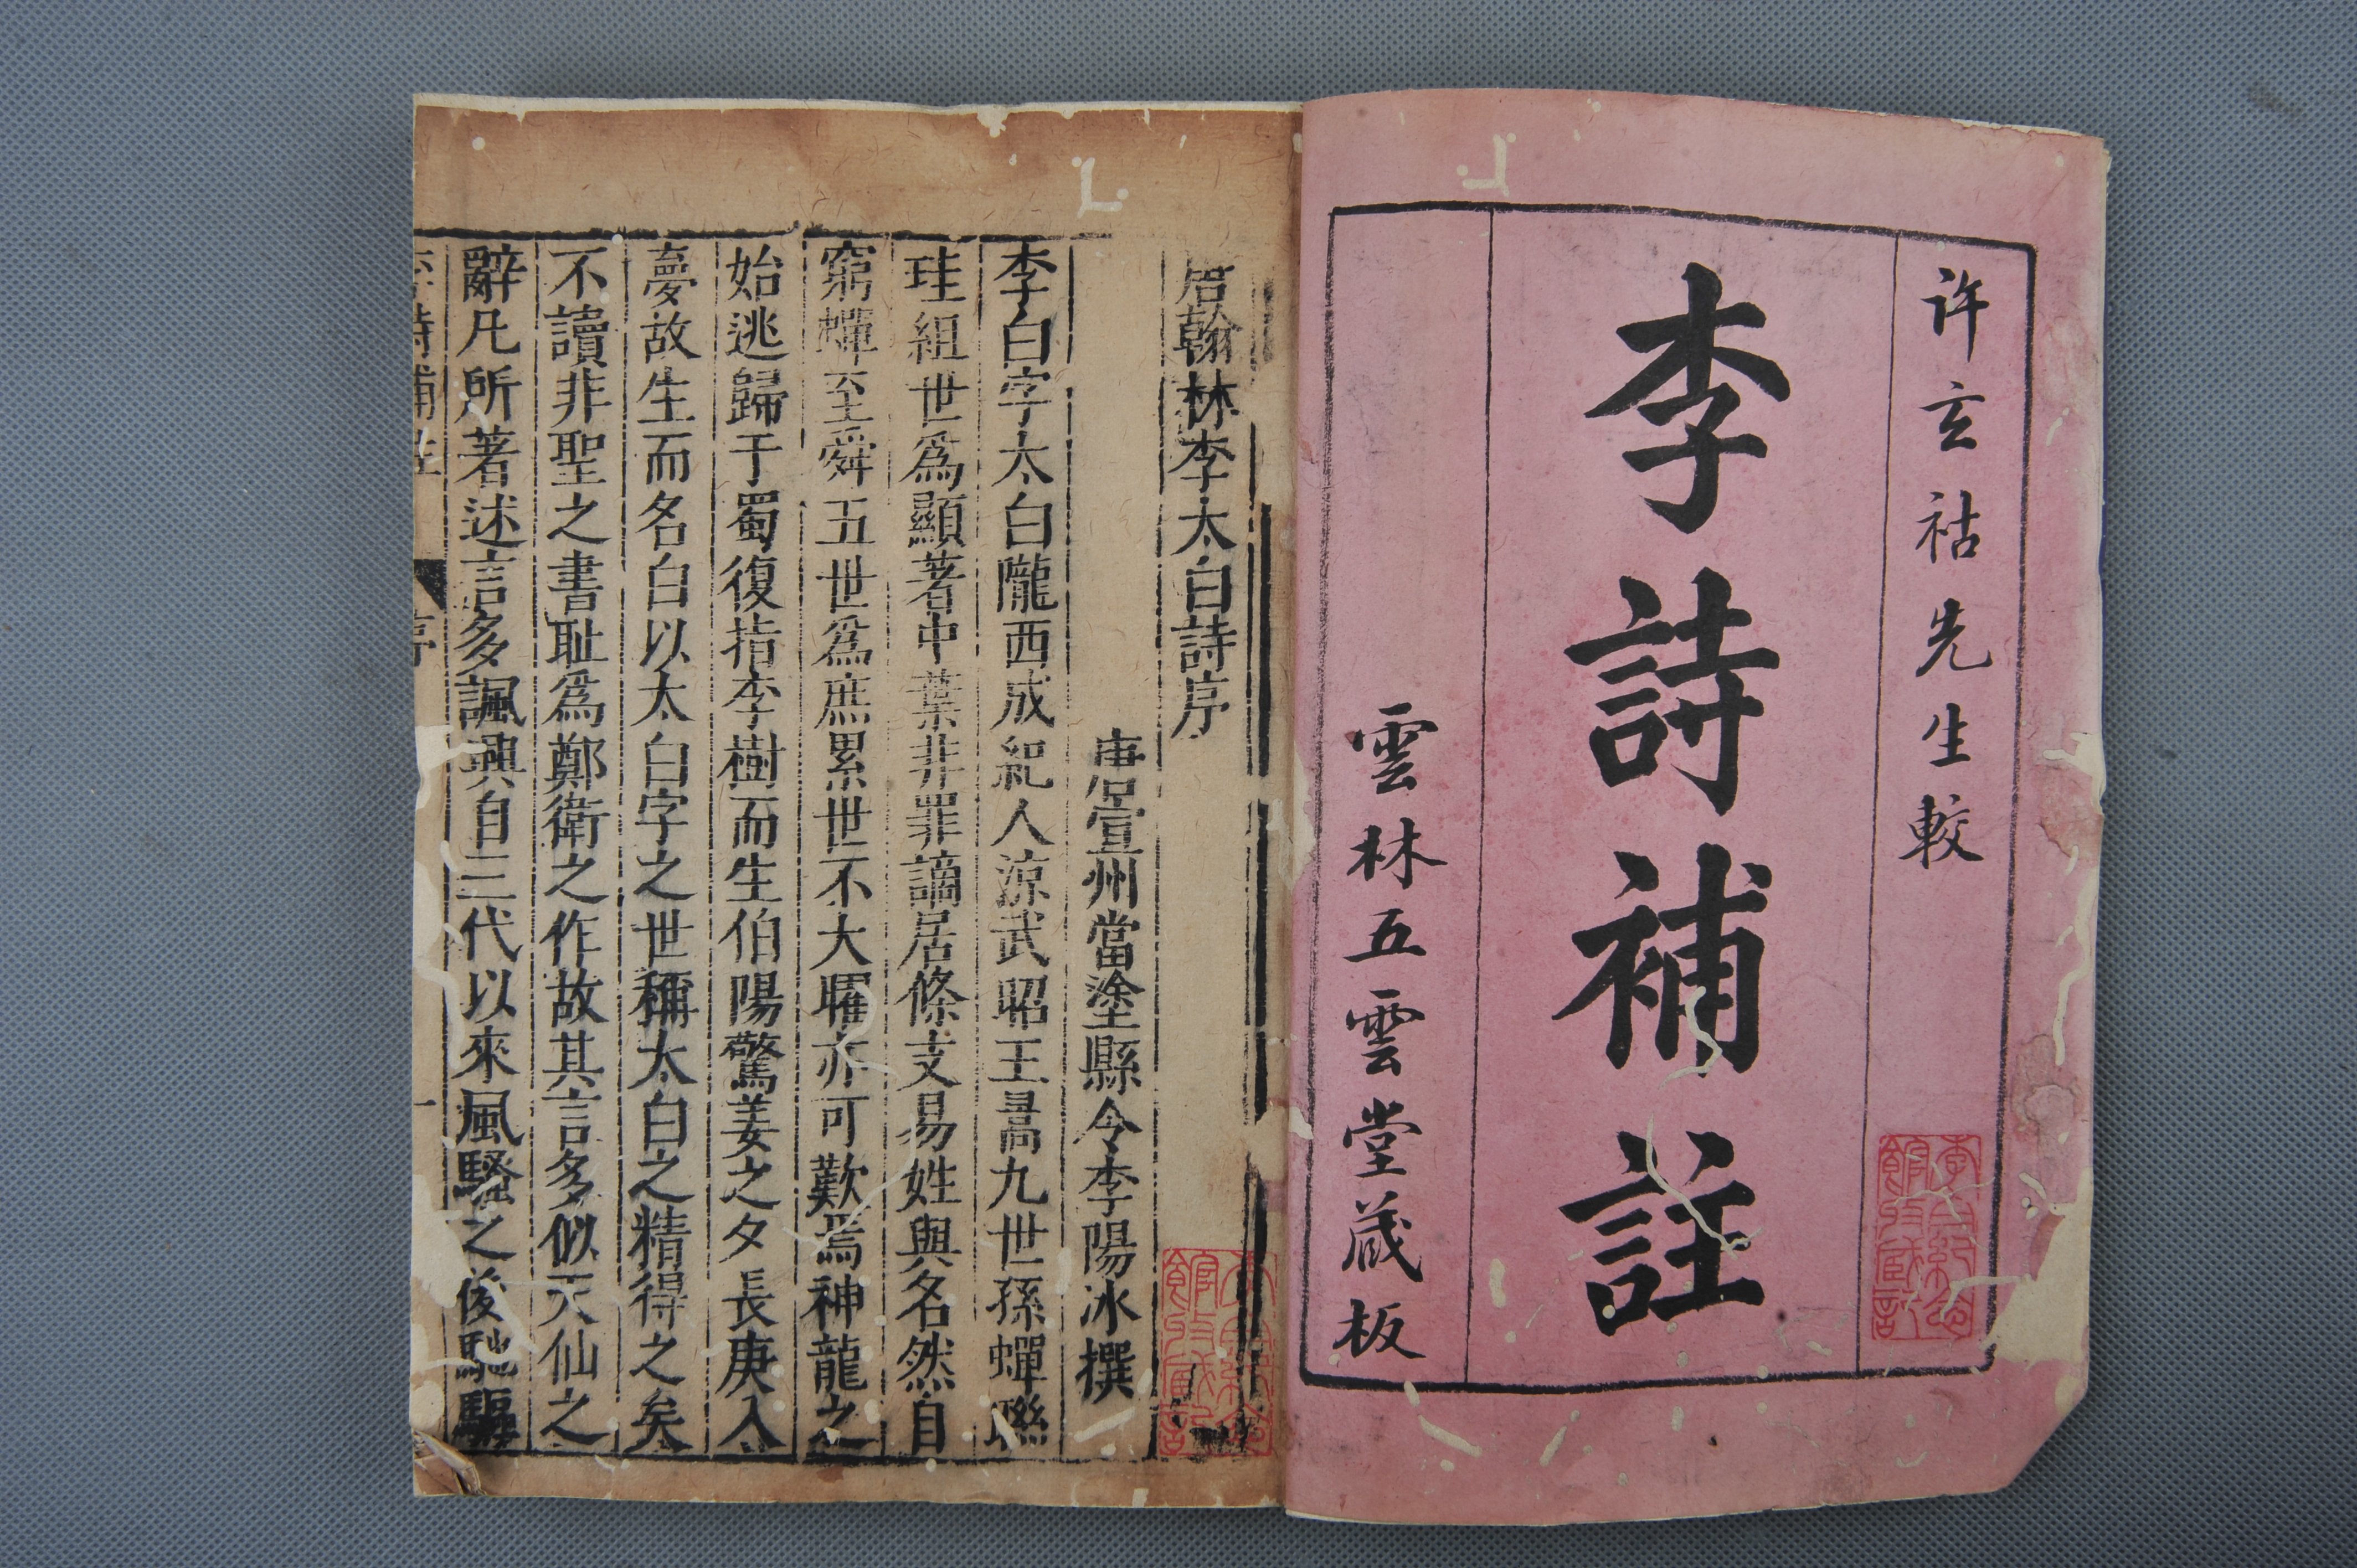 许玄祜先生較
李詩補註
雲林五雲堂蔵板
唐翰林李太白詩序
唐宣州當塗縣令李陽冰撰
李白字太白隴西成紀人涼武昭王暠九世孫蟬聯
珪組世爲顯著中葉非罪謫居條支易姓與名然自
窮蟬至舜五世爲庶累世不大曜亦可歎焉神龍之
始逃歸于蜀復指李樹而生伯陽驚姜之夕長庚入
夢故生而名白以太白字之世稱太白之精得之矣
不讀非聖之書耻爲鄭衛之作故其言多似天仙之
辭凡所著述言多諷興自三代以來風騷之後馳驅